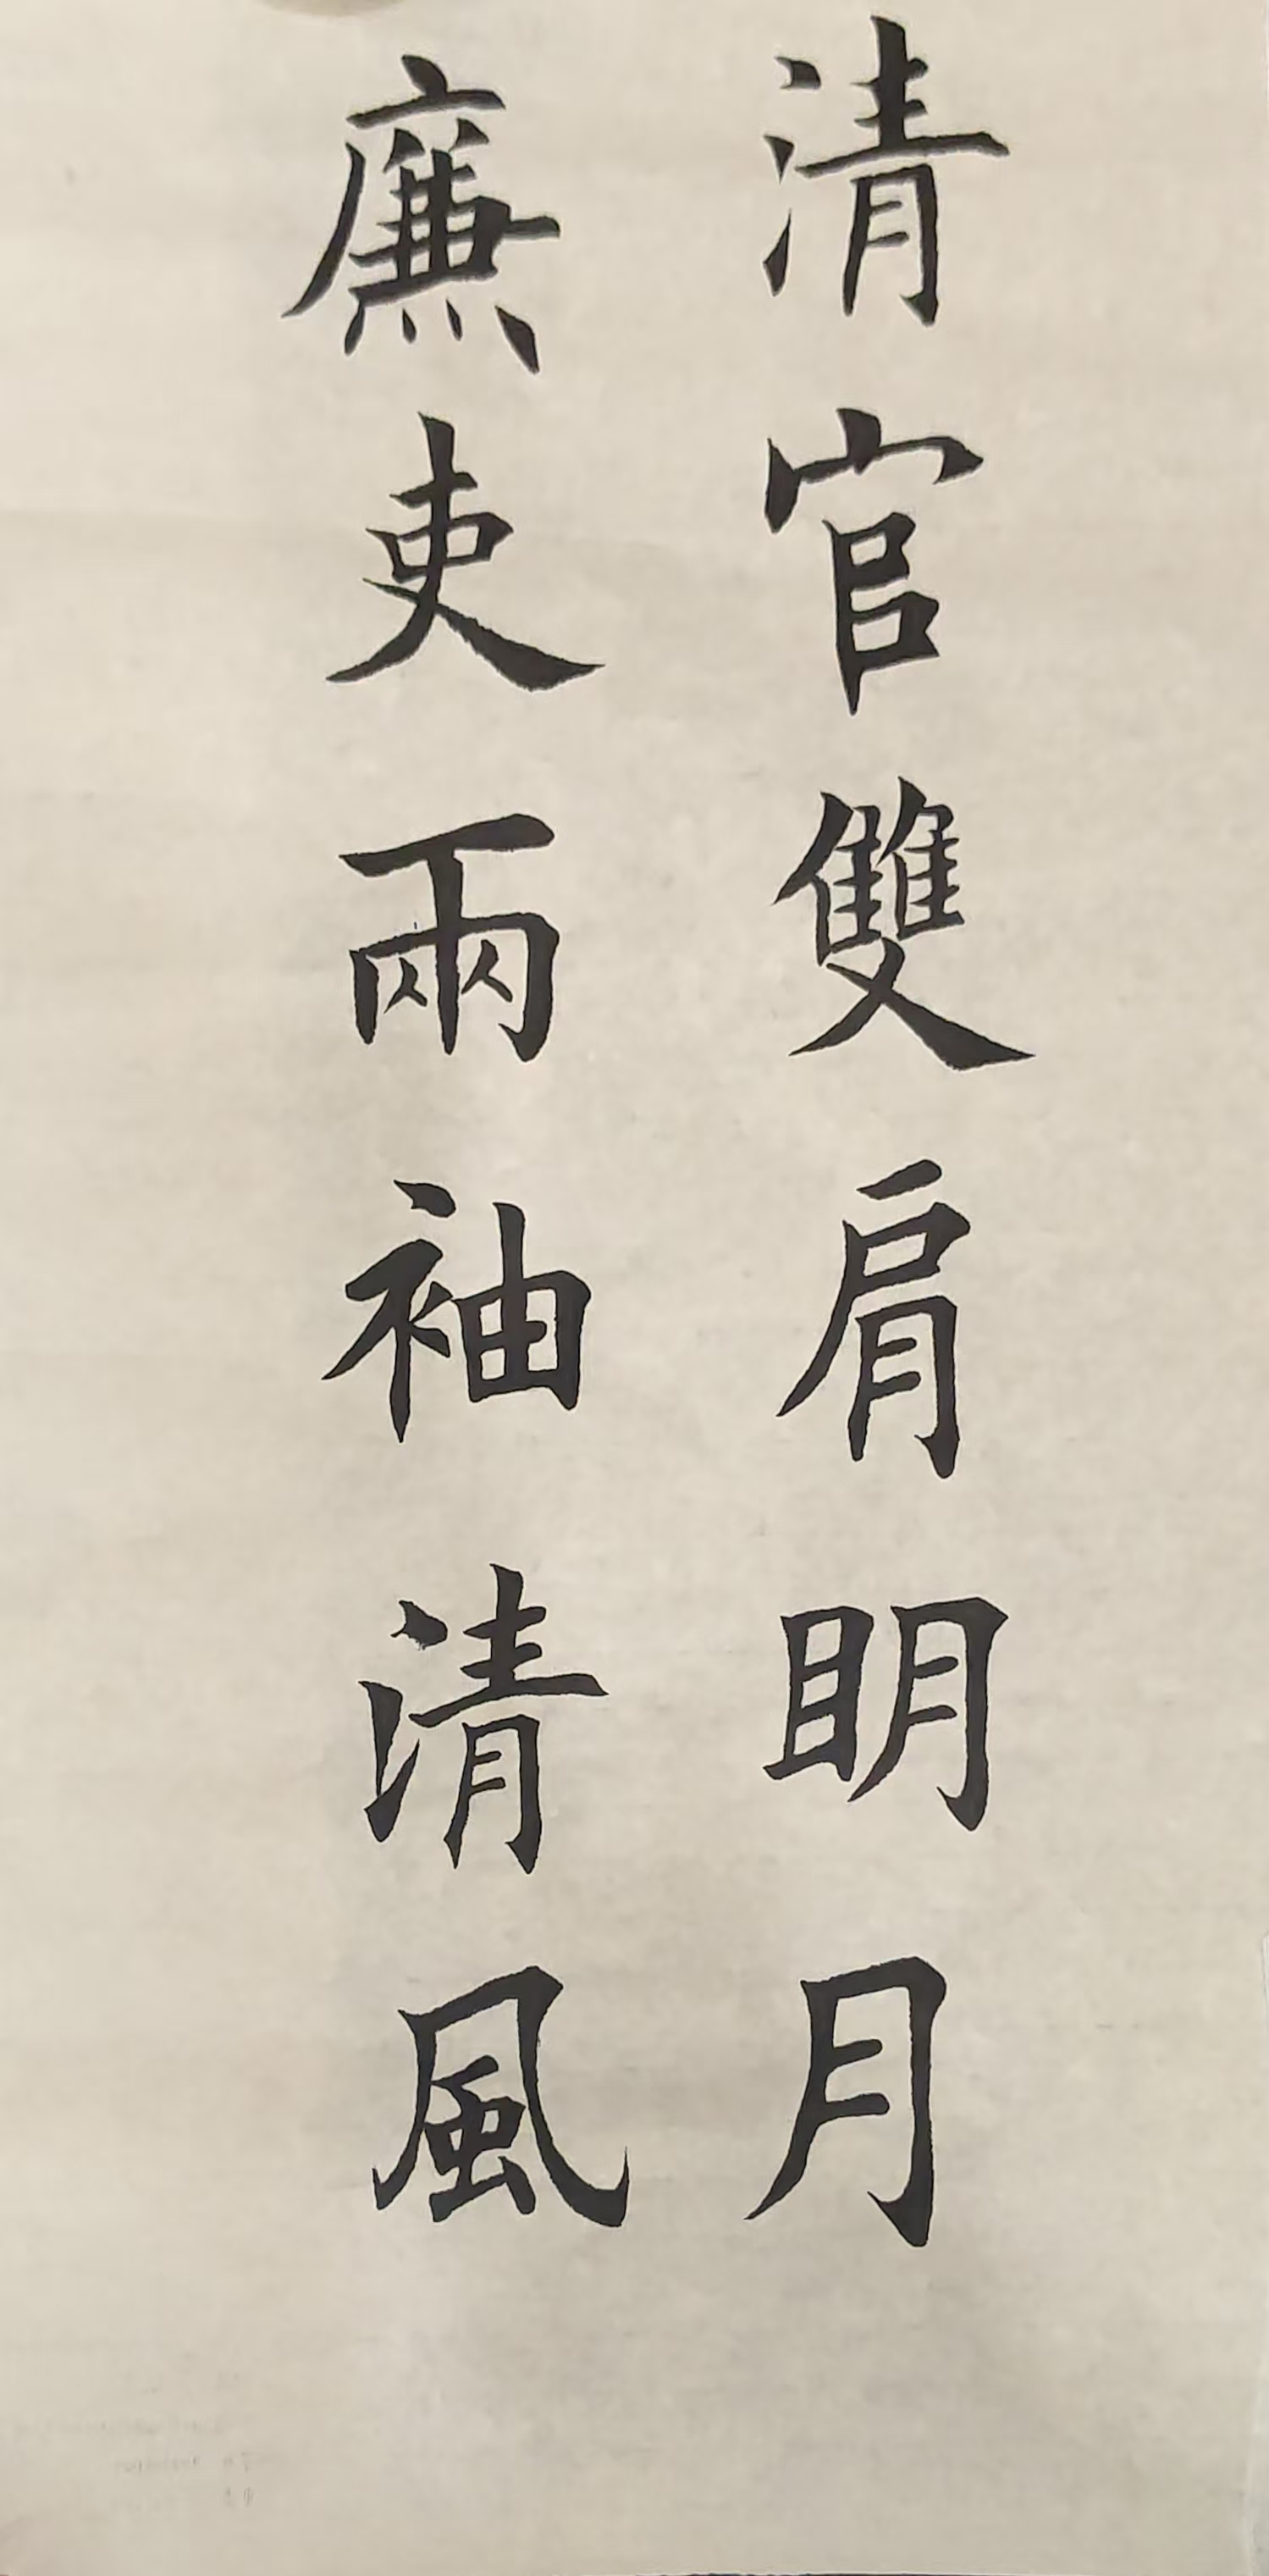 清官雙肩明月
廉吏兩袖清風